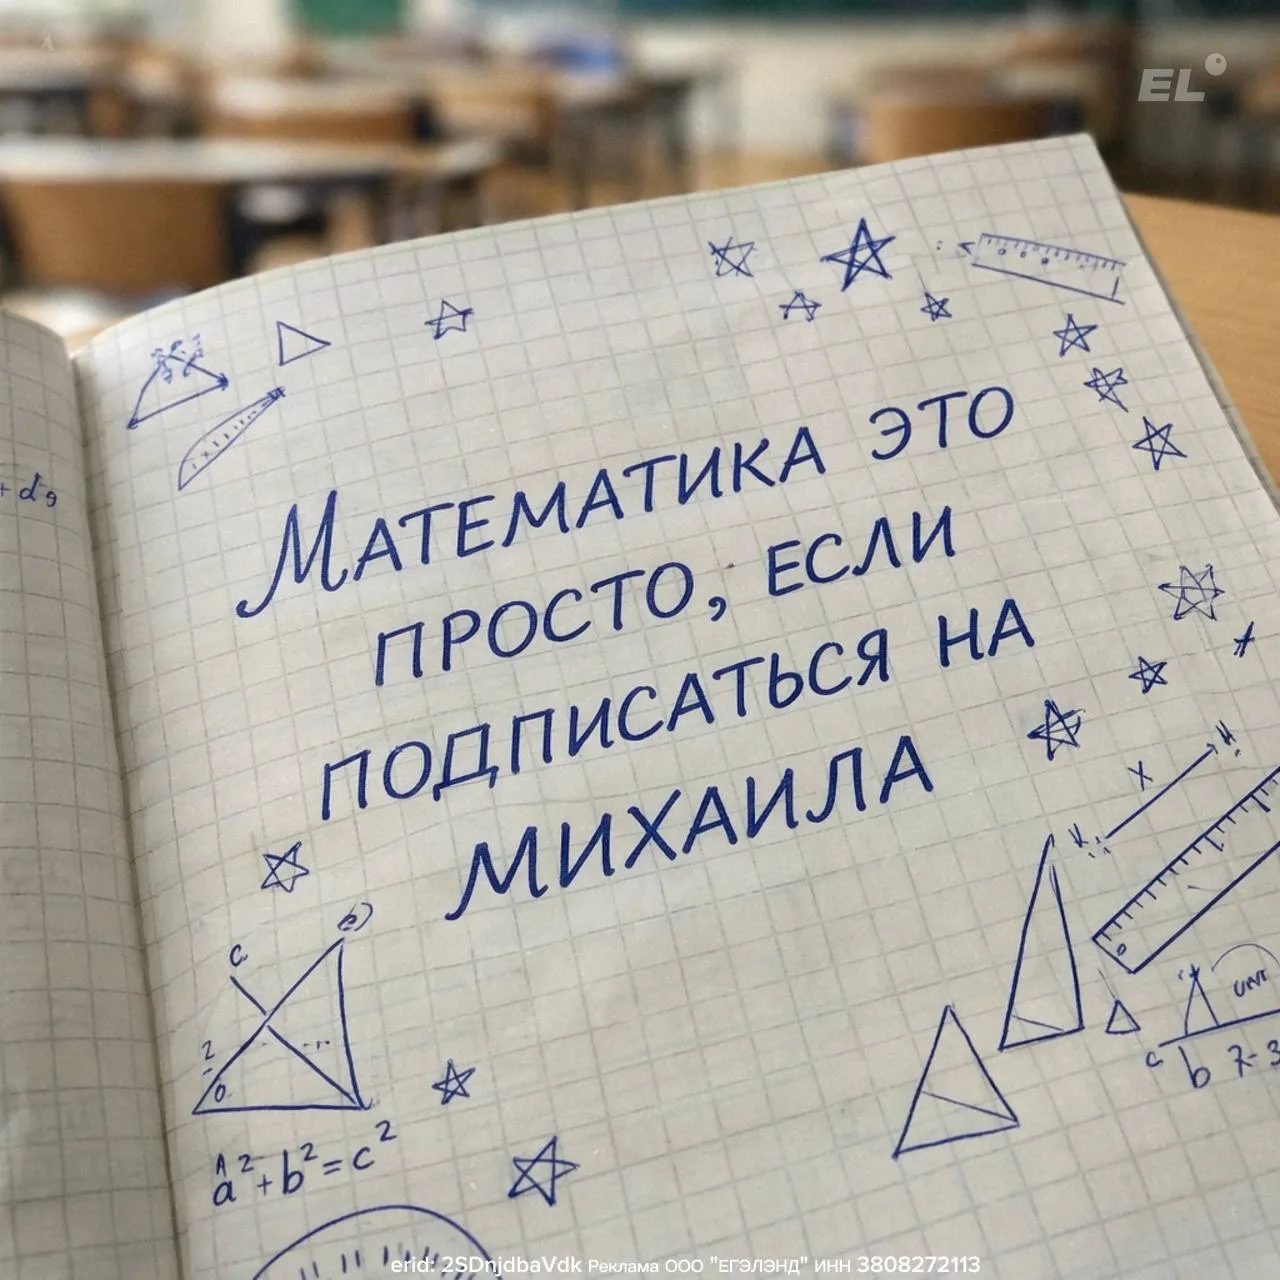 EL
+ d'g
Математика это
просто, если
подписаться на
Михаила
a² + b² = c²
b 7-3
erid: 2SDnjdbaVdk Реклама ООО "ЕГЭЛЭНД" ИНН 3808272113